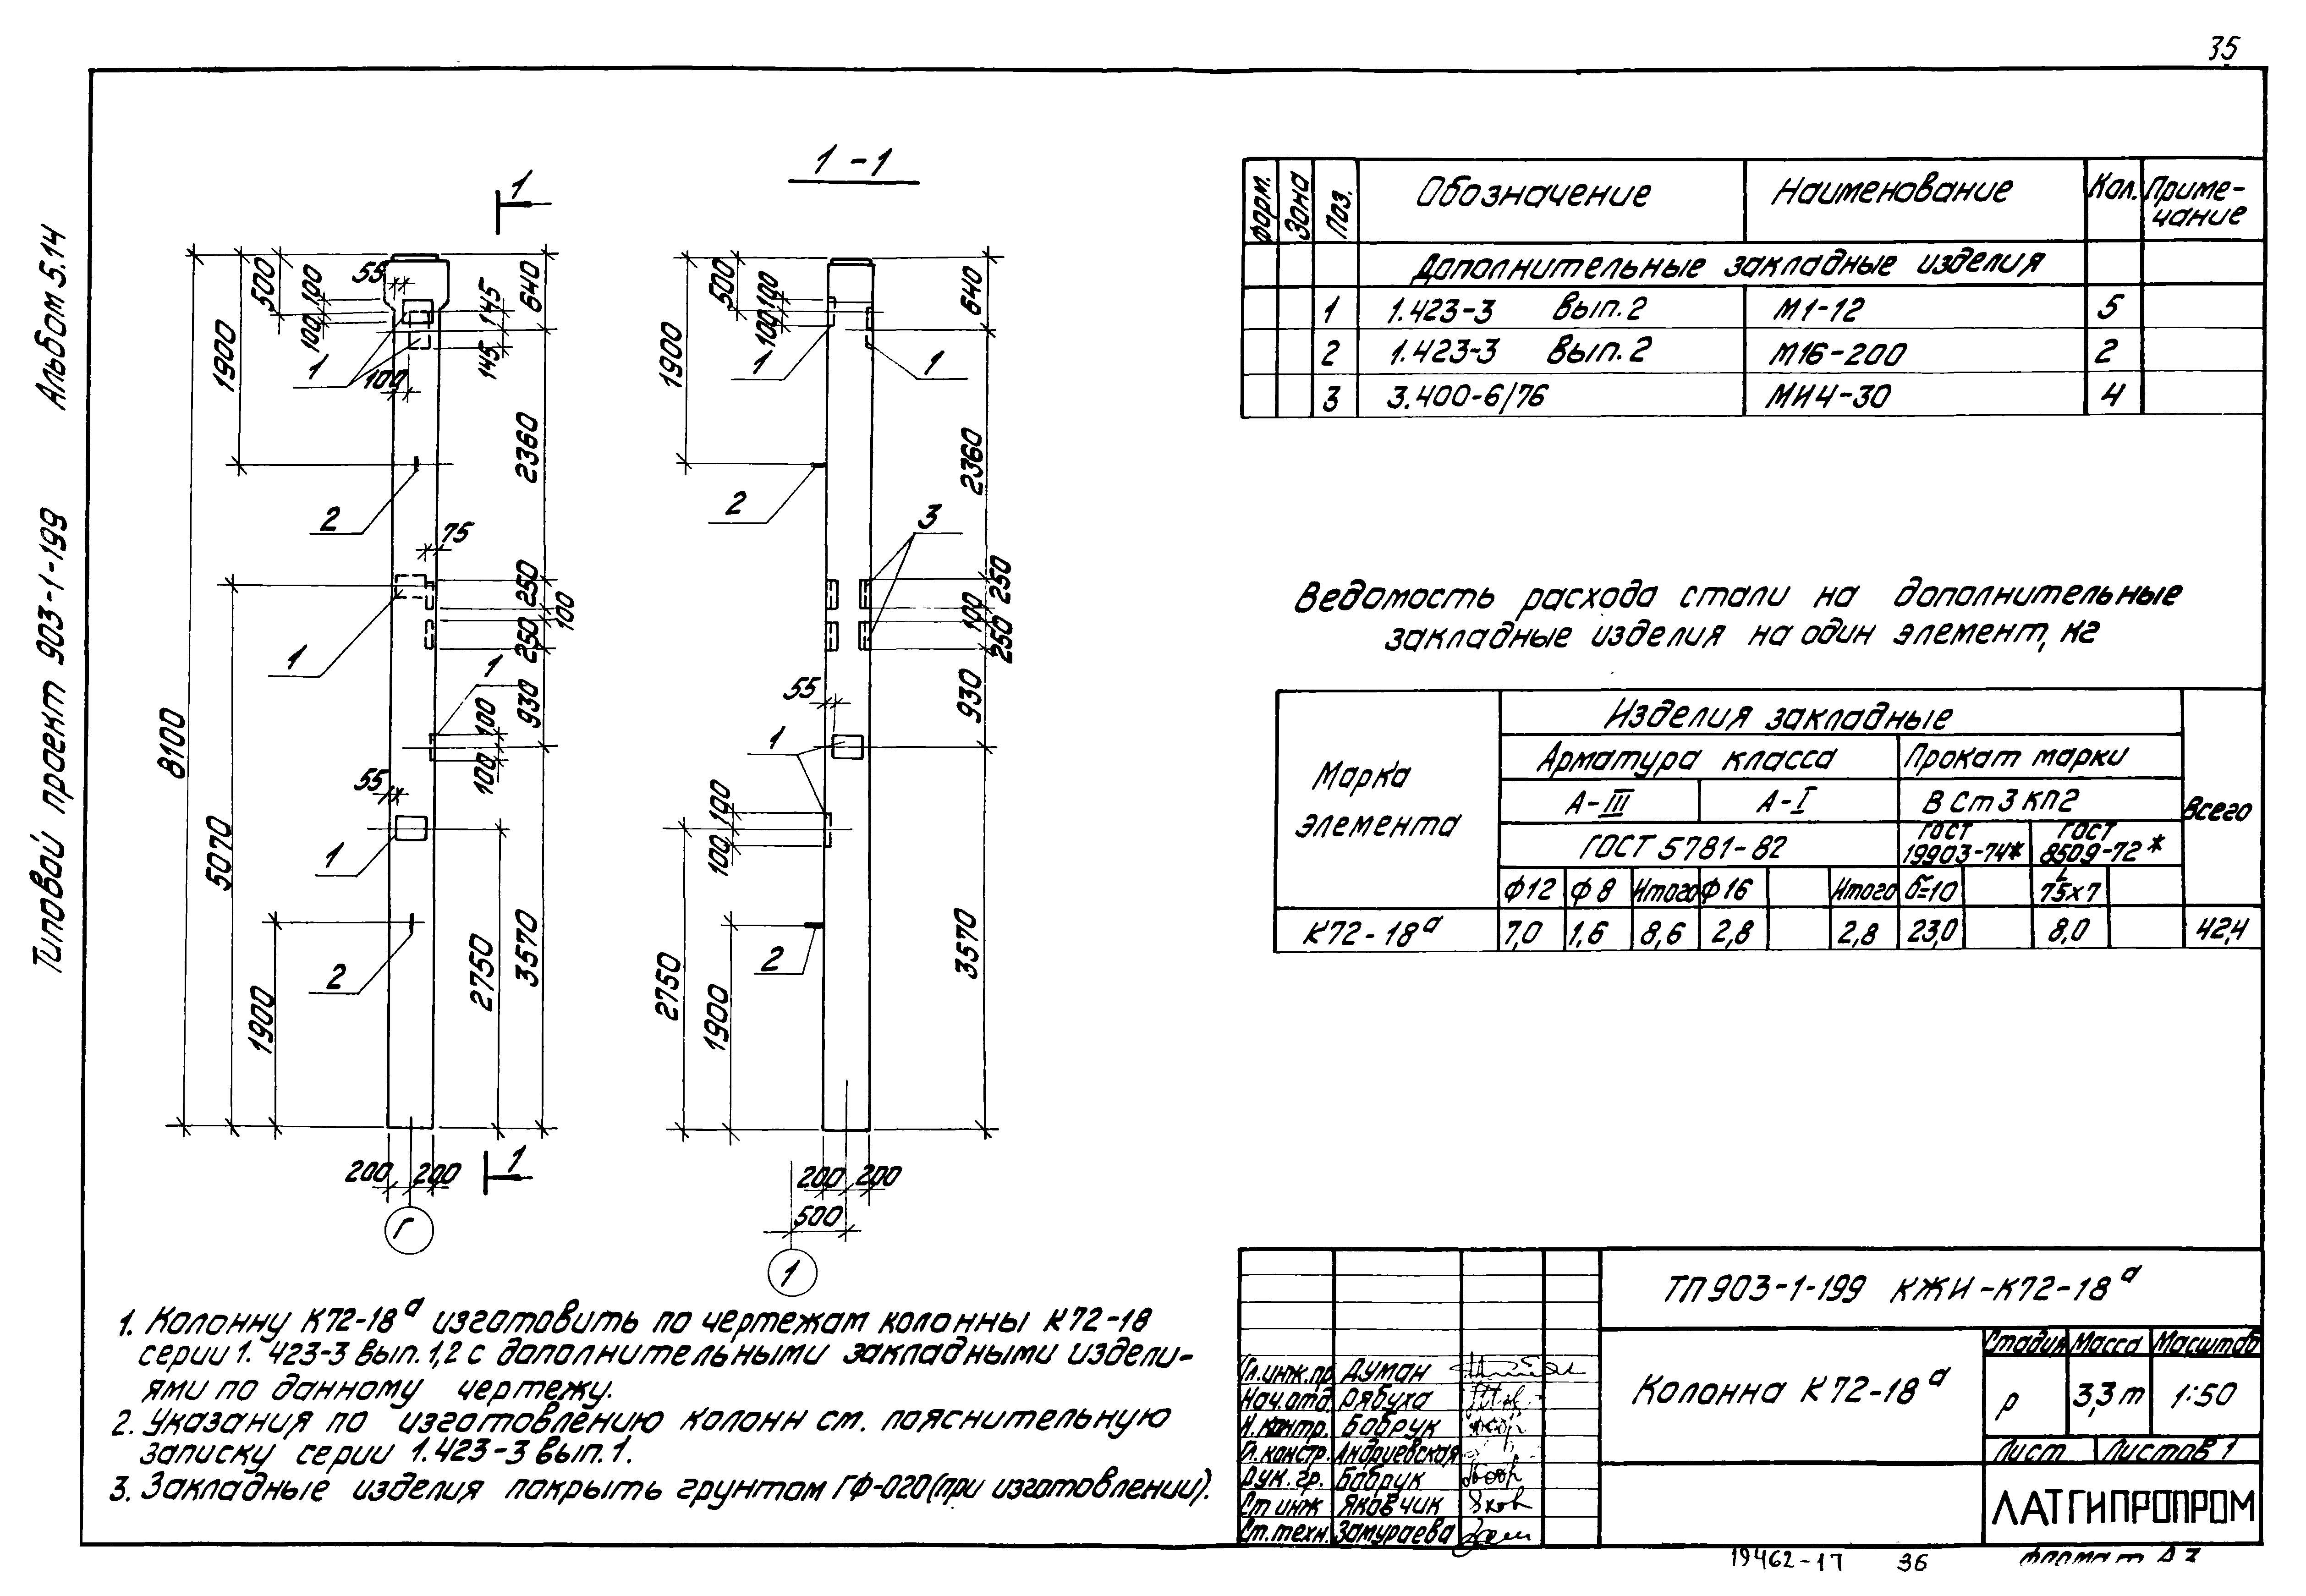 35
Альбом 5.14
Типовой проект 903-1-199
1
1-1
8100
1900
500
100
100
55
145
145
640
1
100
2360
2
75
250
100
250
1
1
930
100
100
5070
55
1
2
1900
2750
3570
200
200
1
Г
500
100
100
1900
640
1
1
2360
2
3
250
100
250
55
930
1
100
100
2
2750
1900
3570
200
200
500
1
Форм.
Зона
Поз.
Обозначение
Наименование
Кол.
Приме-
чание
Дополнительные закладные изделия
1 1.423-3 Вып.2 М1-12 5
2 1.423-3 Вып.2 М16-200 2
3 3.400-6/76 МИ4-30 4
Ведомость расхода стали на дополнительные
закладные изделия на один элемент, кг
Марка
элемента
Изделия закладные
Всего
Арматура класса
Прокат марки
А-III
А-I
В Ст 3 кп2
ГОСТ 5781-82
ГОСТ
19903-74*
ГОСТ
8509-72*
Ф12 Ф8 Итого Ф16 Итого δ=10 L 75x7
К72-18а 7,0 1,6 8,6 2,8 2,8 23,0 8,0 42,4
1. Колонну К72-18а изготовить по чертежам колонны К72-18
серии 1. 423-3 вып.1,2 с дополнительными закладными издели-
ями по данному чертежу.
2. Указания по изготовлению колонн см. пояснительную
записку серии 1.423-3 вып.1.
3. Закладные изделия покрыть грунтом ГФ-020(при изготовлении).
ТП 903-1-199 КЖИ-К72-18а
Колонна К72-18а
Стадия Масса Масштаб
Р 3,3т 1:50
Лист Листов 1
ЛАТГИПРОПРОМ
Гл.инж.пр. Думан
Нач.отд. Рябуха
Н.контр. Бобрук
Гл.констр. Андриевская
Рук.гр. Бобрук
Ст инж Яковчик
Ст.техн. Замураева
19462-17 36
формат А3